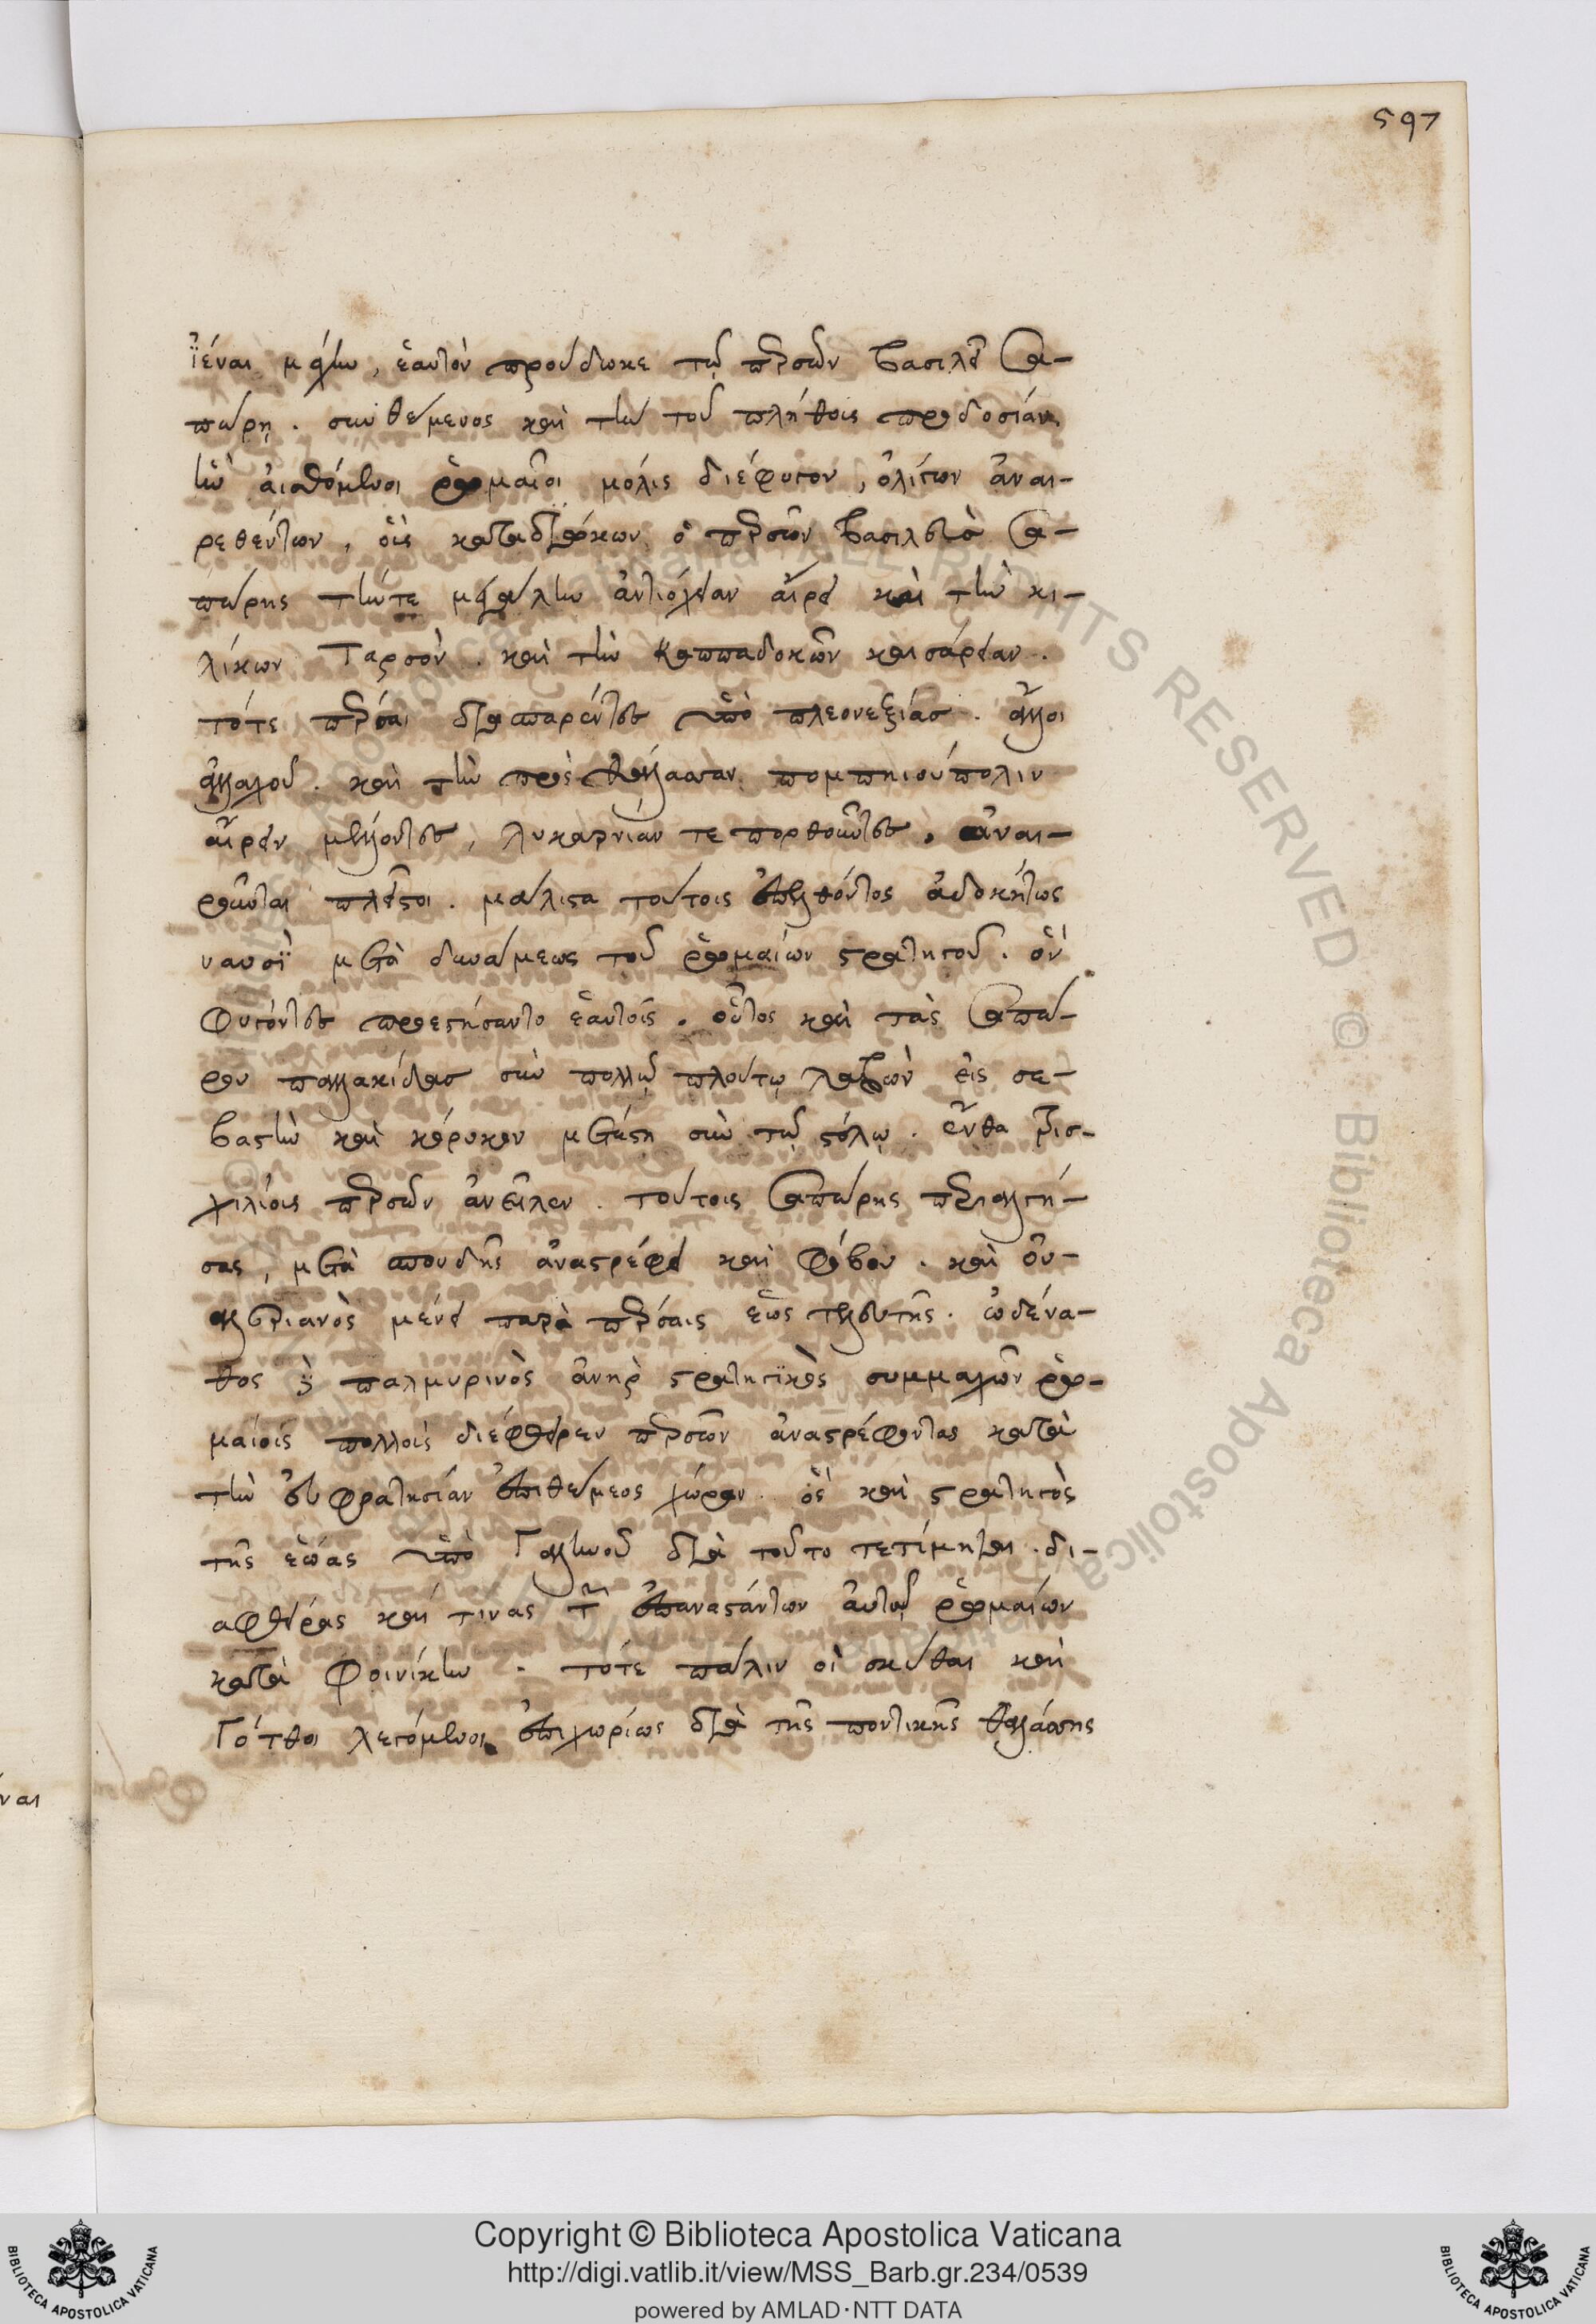 597
ϊέναι μάχην, ἑαυτὸν προύδωκε τῷ περσῶν βασιλεῖ Σα-
πώρῃ. συνθέμενος καὶ τὴν τοῦ πλήθους προδοσίαν.
ἣν αἰσθόμενοι ῥωμαῖοι μόλις διέφυγον, ὀλίγων ἀναι-
ρεθέντων, οὓς καταδιώκων ὁ περσῶν βασιλεὺς Σα-
πώρης τήντε μεγάλην ἀντιόχειαν αἱρεῖ καὶ τὴν κι-
λίκων Ταρσὸν. καὶ τὴν καππαδοκῶν καισάρειαν.
τότε πέρσαι διασπαρέντες ὑπὸ πλεονεξίας. ἄλλοι
ἀλλαχοῦ. καὶ τὴν πρὸς θάλασσαν πομπηιούπολιν
αἱρεῖν μέλλοντες, λυκαρνίαν τε πορθοῦντες. ἀναι-
ροῦνται πλεῖστοι. μάλιστα τούτοις ἐπελθόντος ἀδοκήτως
ναυσῒ μετὰ δυνάμεως τοῦ ῥωμαίων στρατηγοῦ. ὃν
φυγόντες προεστήσαντο ἑαυτοῖς. οὗτος καὶ τὰς Σαπώ-
ρου παλλακίδας σὺν πολλῷ πλούτῳ λαβὼν εἰς σε-
βαστὴν καὶ κόρυκον μετέστη σὺν τῷ στόλῳ. ἔνθα τρισ-
χιλίους περσῶν ἀνεῖλεν. τούτοις Σαπώρης περιαλγή-
σας, μετὰ σπουδῆς ἀναστρέφει καὶ φόβου. καὶ οὐ-
αλεριανὸς μένει παρὰ πέρσαις ἕως τελευτῆς. ὠδένα-
θος δὲ παλμυρινὸς ἀνὴρ στρατηγϊκὸς συμμαχῶν ῥω-
μαίοις πολλοὺς διέφθειρεν περσῶν ἀναστρέφοντας κατὰ
τὴν εὐφρατησίαν ἐπιθέμεος χώραν. ὃς καὶ στρατηγὸς
τῆς ἑώας ὑπὸ Γαλιηνοῦ διὰ τοῦτο τετίμηται. δι-
αφθείρας καί τινας τῶν ἐπαναστάντων αὐτῷ ῥωμαίων
κατὰ Φοινίκην. τότε πάλιν οἱ σκύθαι καὶ
Γότθοι λεγόμενοι ἐπιχωρίως διὰ τῆς ποντικῆς θαλάσσης
ναι
Copyright © Biblioteca Apostolica Vaticana
http://digi.vatlib.it/view/MSS_Barb.gr.234/0539
powered by AMLAD·NTT DATA
BIBLIOTECA APOSTOLICA VATICANA
BIBLIOTECA APOSTOLICA VATICANA